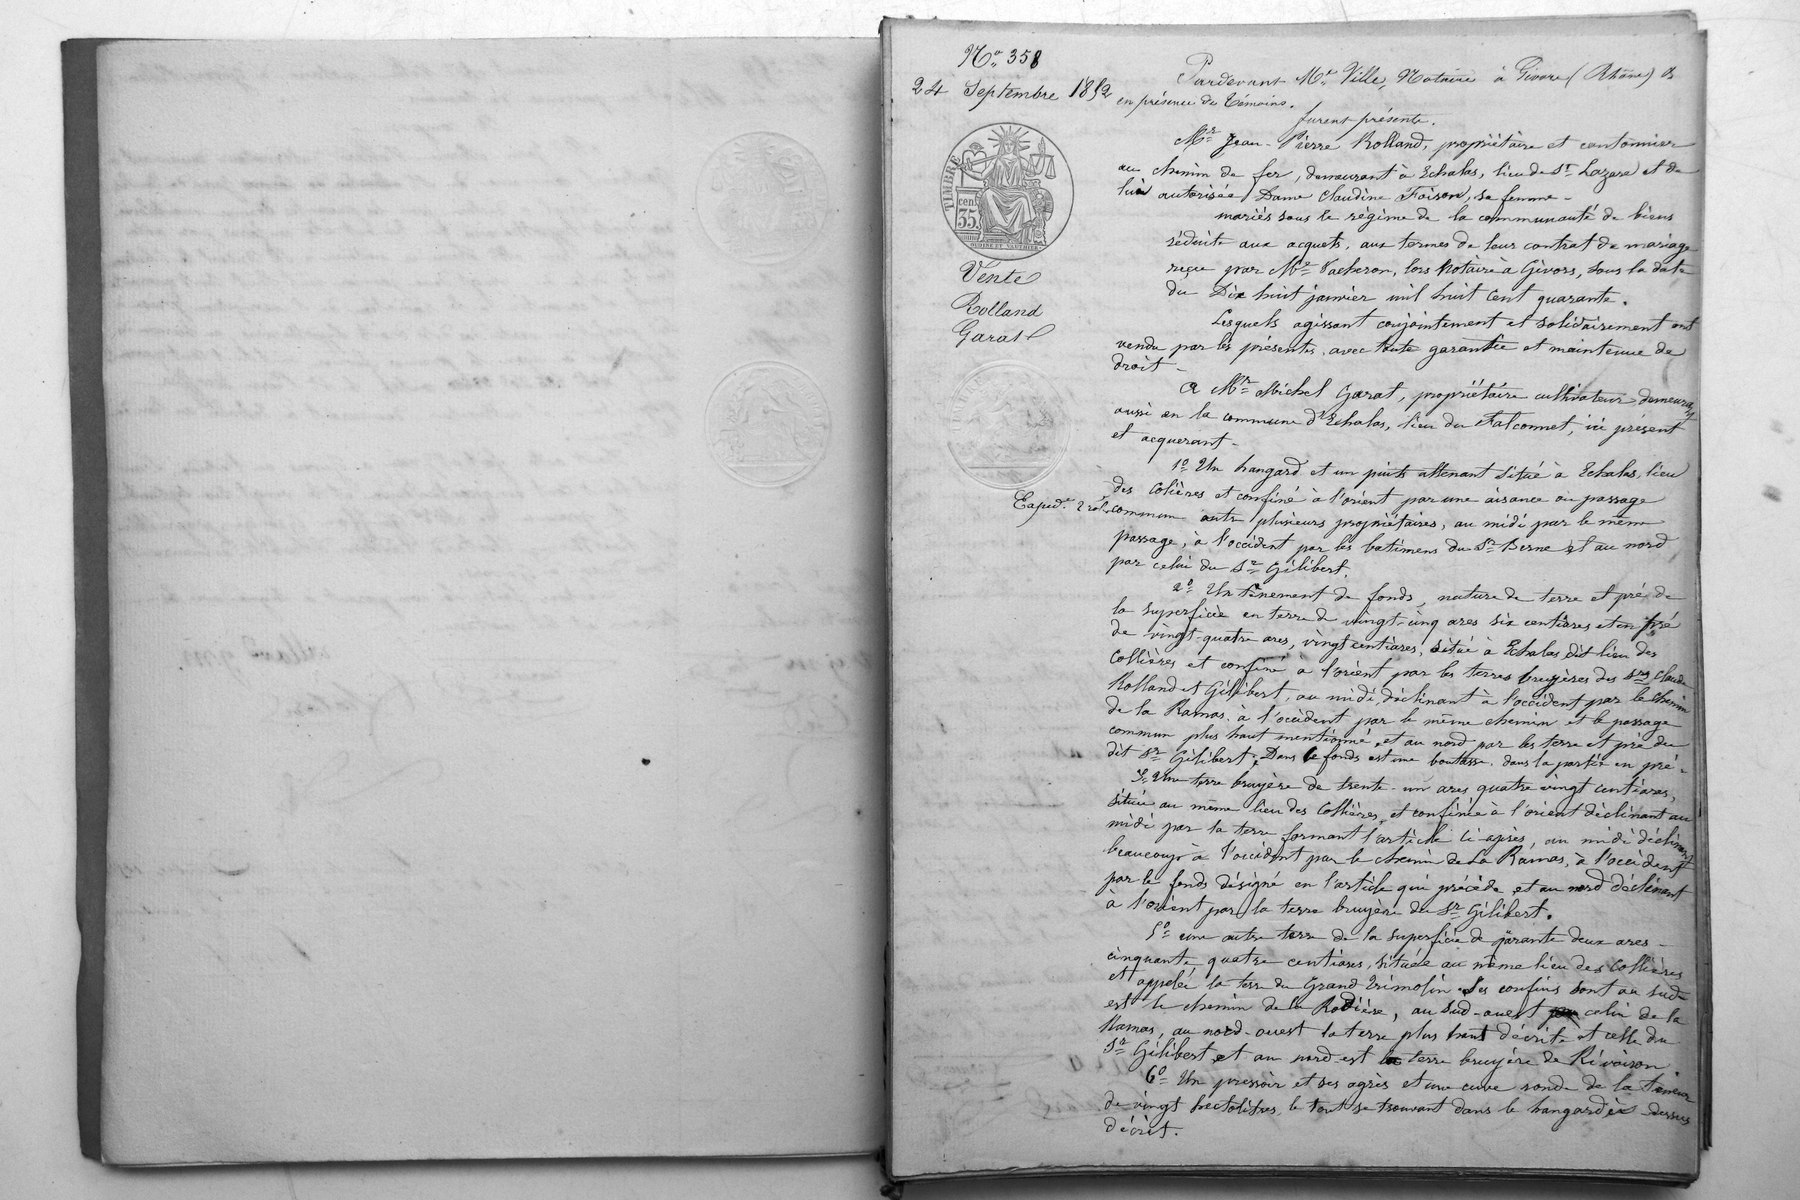 N.o 358
24 Septembre 1852
TIMBRE
35 cen.
Vente
Rolland
Garat
Expéd.e 2 rol.
Pardevant M.e Ville, Notaire à Givors (Rhône) &
en présence de témoins.
furent présents.
M.r Jean-Pierre Rolland, propriétaire et cantonnier
au chemin de fer, demeurant à Echalas, lieu de S.t Lazare et de
lui autorisée Dame Claudine Foison, sa femme -
mariés sous le régime de la communauté de biens
réduite aux acquets, aux termes de leur contrat de mariage
reçu par M.e Vacheron, lors Notaire à Givors, sous la date
du Dix huit janvier mil huit cent quarante.
Lesquels agissant conjointement et solidairement ont
vendu par les présentes, avec toute garantie et maintenue de
droit -
A M.r Michel Garat, propriétaire cultivateur, demeurant
aussi en la commune d'Echalas, lieu du Falconnet, ici présent
et acquerant -
1.o Un hangard et un puits attenant situé à Echalas, lieu
des Colières et confiné à l'orient par une aisance ou passage
commun entre plusieurs propriétaires, au midi par le même
passage, à l'occident par les batimens du S.r Berne et au nord
par celui du S.r Gilibert.
2.o Un tènement de fonds, nature de terre et pré de
la superficie en terre de vingt-cinq ares six centiares et en pré
de vingt-quatre ares, vingt centiares, situé à Echalas dit lieu des
Collières et confiné à l'orient par les terres bruyères des S.rs Claude
Rolland et Gilibert, au midi, déclinant à l'occident par le chemin
de la Ramas, à l'occident par le même chemin et le passage
commun plus haut mentionné, et au nord par les terre et pré du
dit S.r Gilibert. Dans le fonds est une boutasse, dans la partie en pré -
Une terre bruyère de trente-un ares quatre vingt centiares,
située au même lieu des Collières, et confinée à l'orient déclinant au
midi par la terre formant l'article ci-après, au midi déclinant
beaucoup à l'occident par le chemin de La Ramas, à l'occident
par le fonds désigné en l'article qui précède, et au nord déclinant
à l'orient par la terre bruyère du S.r Gilibert.
5.o une autre terre de la superficie de qarante deux ares -
cinquante quatre centiares, située au même lieu des Collières
et appelée la terre du Grand Trimolin. Ses confins sont au sud-
est le chemin de la Rodière, au sud-ouest celui de la
Ramas, au nord-ouest la terre plus haut décrite et celle du
S.r Gilibert et au nord-est la terre bruyère de Révoison.
6.o Un pressoir et ses agrès et une cuve ronde de la teneur
de vingt hectolitres, le tout se trouvant dans le hangard ci-dessus
décrit.